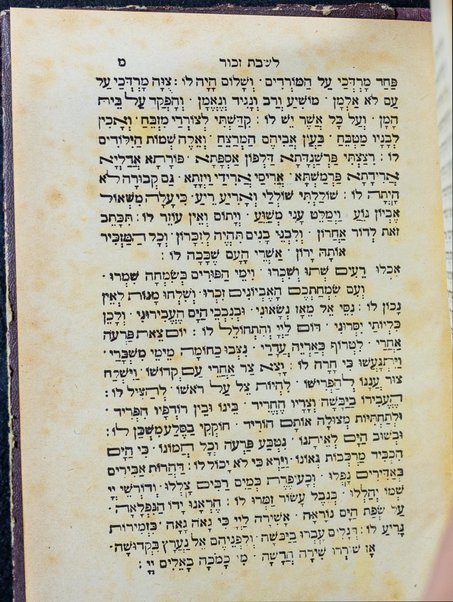 לשבת זכור
מ
פַּחַד מָרְדְּכַי עַל הַמּוֹרְדִים · וְשָׁלוֹם הָיָה לוֹ : צִוָּה מָרְדְּכַי עַל
עַם לֹא אַלְמָן · מוֹשִׁיעַ וָרַב וְנָגִיד וְנֶאֱמָן · וְהָפְקַד עַל בֵּית
הָמָן · וְעַל כָּל אֲשֶׁר יֶשׁ לוֹ : קִדַּשְׁתִּי לְצוֹרְרִי מִזְבֵּחַ · וְאָכִין
לְבָנָיו מַטְבֵּחַ · בַּעֲוֹן אֲבִיהֶם הַמְרַצֵּחַ · וְאֵלֶּה שְׁמוֹת הַיִּלּוֹדִים
לוֹ : רָצַצְתִּי פַּרְשַׁנְדָּתָא דַּלְפוֹן אַסְפָּתָא · פּוֹרָתָא אֲדַלְיָא
אֲרִידָתָא פַּרְמַשְׁתָּא · אֲרִיסַי אֲרִידַי וְיְזָתָא · גַּם קְבוּרָה לֹא
הָיְתָה לוֹ : שׁוֹלַלְתִּי שׁוֹלְלַי וְאָרִיעַ רֵיעַ · כִּי עָלָה מִשְּׁאוֹל
אֶבְיוֹן נוֹעַ · וַיְמַלֵּט עָנִי מְשַׁוֵּעַ · וְיָתוֹם וְאֵין עוֹזֵר לוֹ : תִּכָּתֵב
זֹאת לְדוֹר אַחֲרוֹן · וְלִבְנֵי בָנִים תִּהְיֶה לְזִכָּרוֹן · וְכָל הַמַּזְכִּיר
אוֹתָהּ יָרוֹן · אַשְׁרֵי הָעָם שֶׁכָּכָה לּוֹ :
אִכְלוּ רֵעִים שְׁתוּ וְשִׁכְרוּ · וִימֵי הַפּוּרִים בְּשִׂמְחָה שִׁמְרוּ ·
וְעִם שִׂמְחַתְכֶם הָאֶבְיוֹנִים זִכְרוּ · וְשִׁלְחוּ מָנוֹת לְאֵין
נָכוֹן לוֹ : נִסֵּי אֵל מֵאָז נְשָׂאוּנִי · וּבְנִבְכֵי הַיָּם הֶעֱבִירוּנִי · וְלָכֵן
כִּלְיוֹתַי יִסְּרוּנִי · דּוֹם לַיְיָ וְהִתְחוֹלֵל לוֹ : יוֹם יָצָא פַרְעֹה
אַחֲרַי · לִטְרוֹף כְּאַרְיֵה עֲדָרַי · נִצְּבוּ כַחוֹמָה מֵימֵי מִשְׁבָּרַי ·
וַיִּתְגָּעֲשׁוּ כִּי חָרָה לוֹ : יָצָא צַר אַחֲרֵי עַם קְדוֹשׁוֹ · וַיִּשְׁלַח
צוּר עֲנָנוֹ לְהַפְרִישׁוֹ · לִהְיוֹת צֵל עַל רֹאשׁוֹ · לְהַצִּיל לוֹ :
הֶעֱבִירוֹ בַּיַּבָּשָׁה וְצָרָיו הֶחֱרִיד · בֵּינוֹ וּבֵין רוֹדְפָיו הִפְרִיד ·
וּלְתַחְתִּיּוֹת מְצוּלָה אוֹתָם הוֹרִיד · חוֹקְקִי בַסֶּלַע מִשְׁכָּן לוֹ :
וּבְשׁוּב הַיָּם לְאֵיתָנוֹ · נִטְבַּע פַּרְעֹה וְכָל הֲמוֹנוֹ · כִּי הַיָּם
הִכְבִּיר מַרְכְּבוֹת גְּאוֹנוֹ · וַיַּרְא כִּי לֹא יָכוֹל לוֹ : דַּהֲרוֹת אַבִּירִים
בְּאַדִּירִים נָפָלוּ · וְכָעוֹפֶרֶת בְּמַיִם רַבִּים צָלָלוּ · וְדוֹרְשֵׁי יְיָ
שְׁמוֹ יְהַלֵּלוּ · בְּנֵבֶל עָשׂוֹר זַמְּרוּ לוֹ : הֶרְאָנוּ יָדוֹ הַנִּפְלָאָה ·
עַל שְׂפַת הַיָּם נוֹרָאָה · אָשִׁירָה לַיְיָ כִּי גָאֹה גָּאָה · בִּזְמִירוֹת
נָרִיעַ לוֹ : דְּגָלִים עָבְרוּ בַּיַּבָּשָׁה · וְלִפְנֵיהֶם אֵל נַעֲרָץ בִּקְדוּשָּׁה ·
אָז שׁוֹרְרוּ שִׁירָה חֲדָשָׁה · מִי כָמֹכָה בָּאֵלִים יְיָ :